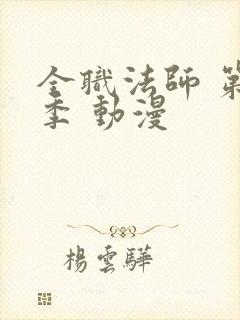 全職法師 第
季 動漫
楊雲驊